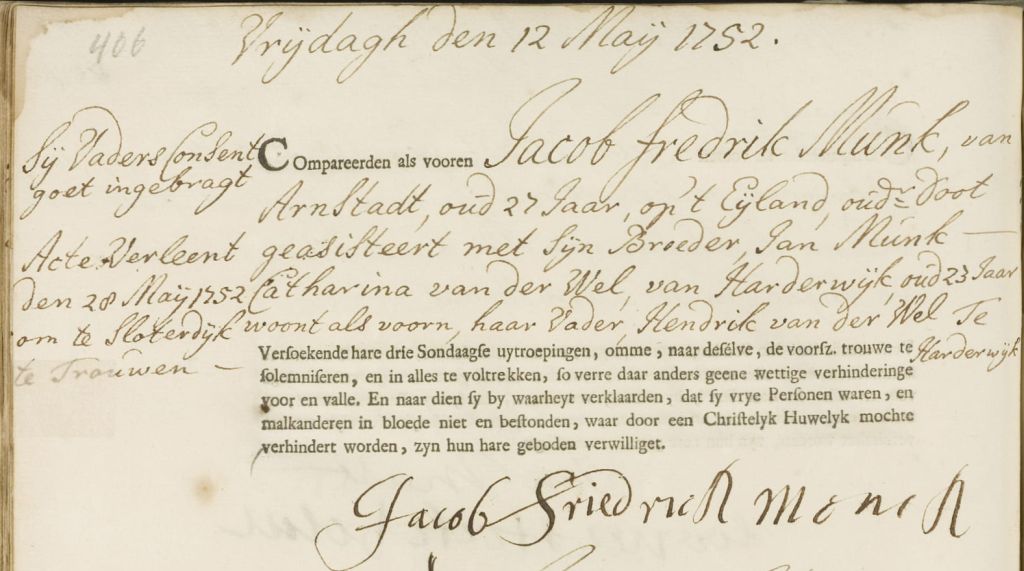 406
Vrijdagh den 12 Maÿ 1752.
Sÿ Vaders Consent
goet ingebragt
Acte Verleent
den 28 Maÿ 1752
om te Sloterdÿk
te Trouwen –
Compareerden als vooren Jacob fredrik Munk, van
Arnstadt, oud 27 Jaar, op't Eÿland, oud.rs Doot
geasisteert met Sÿn Broeder, Jan Munk —
Catharina van der Wel, van Harderwÿk, oud 23 Jaar
woont als voorn, haar Vader, Hendrik van der Wel Te
Harderwÿk
Versoekende hare drie Sondaagse uytroepingen, omme, naar desélve, de voorsz. trouwe te
solemniseren, en in alles te voltrekken, so verre daar anders geene wettige verhinderinge
voor en valle. En naar dien sy by waarheyt verklaarden, dat sy vrye Personen waren, en
malkanderen in bloede niet en bestonden, waar door een Christelyk Huwelyk mochte
verhindert worden, zyn hun hare geboden verwilliget.
Jacob Friedrick Monck